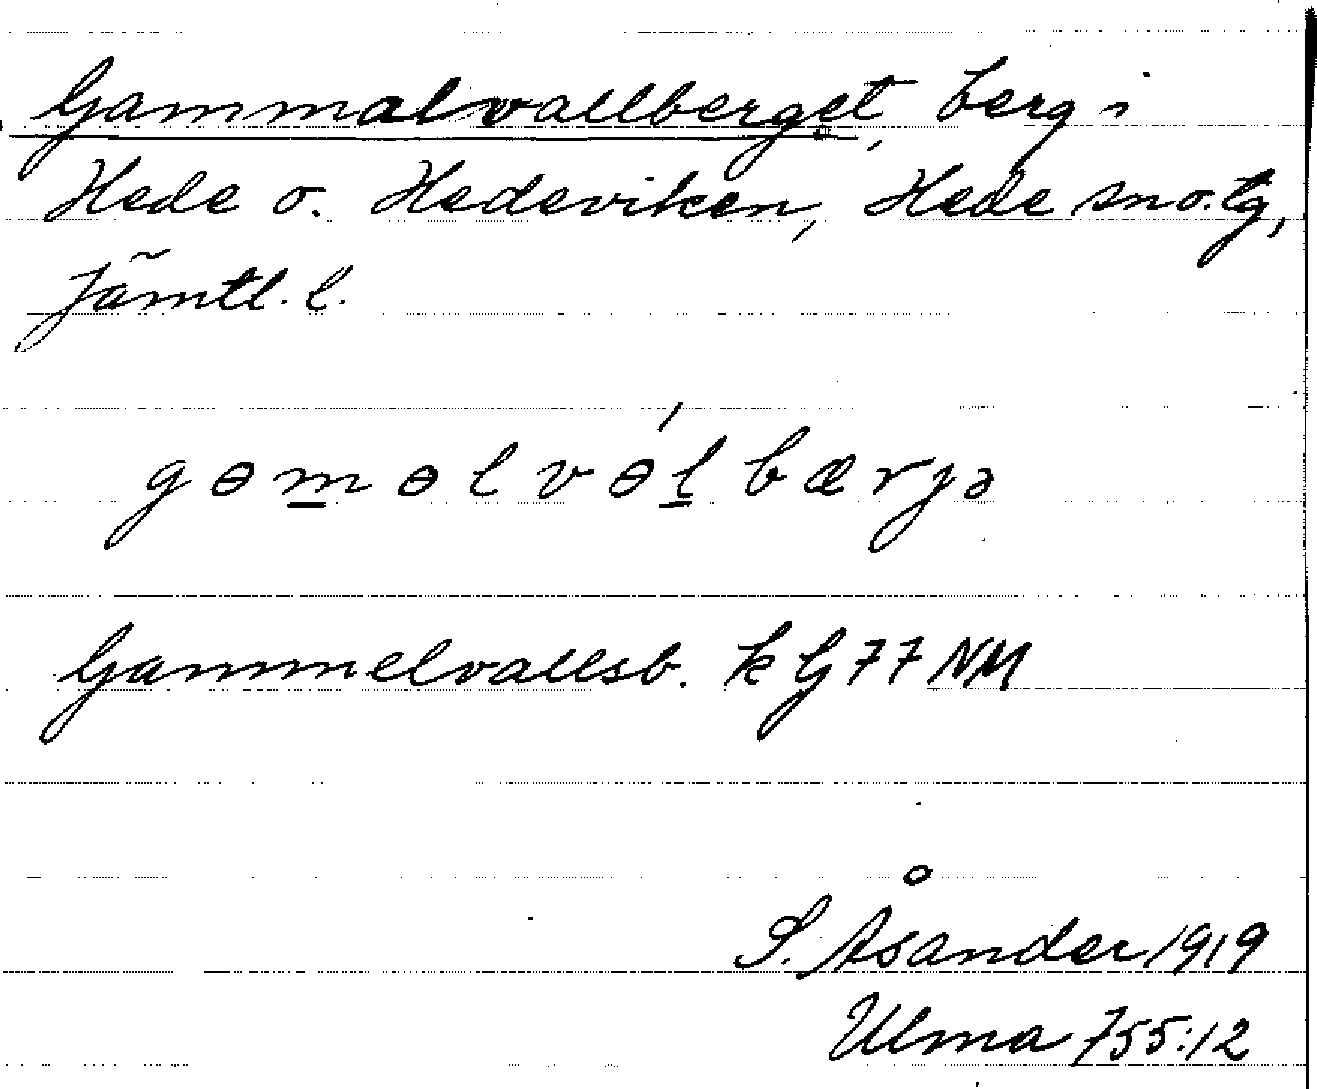 Gammalvallberget, berg i
Hede o. Hedeviken, Hede sn o. tg,
Jämtl. l.
gɵm̲ɵlvɵ́l̲bærjə
Gammelvallsb. k G 77 NM
S. Åsander 1919
Ulma 755:12